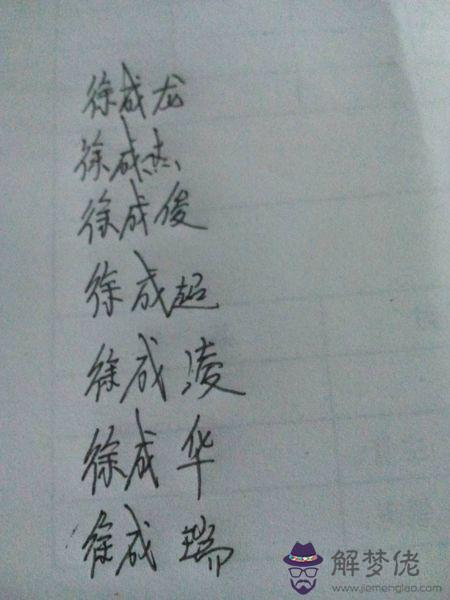 徐成龙
徐成杰
徐成俊
徐成超
徐成凌
徐成华
徐成瑞
解梦佬
www.jiemenglao.com